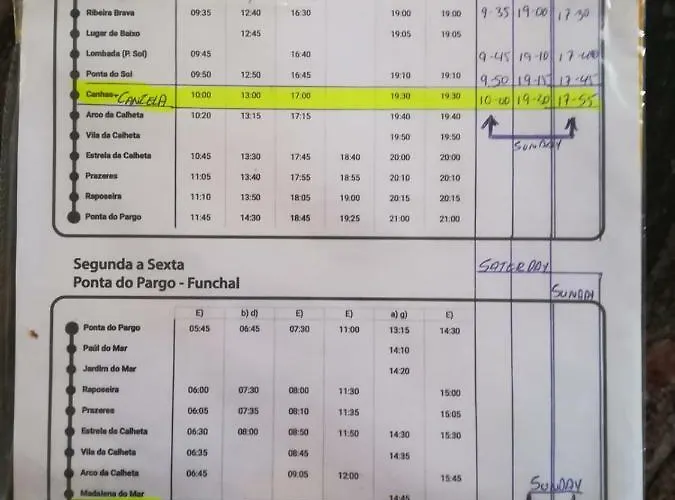 Ribeira Brava 09:35 12:40 16:30 19:00 19:00 9-35 19-00 17-30
Lugar de Baixo 12:45 19:05 19:05
Lombada (P. Sol) 09:45 16:40 9-45 19-10 17-40
Ponta do Sol 09:50 12:50 16:45 19:10 19:10 9-50 19-15 17-45
Canhas- CANCELA 10:00 13:00 17:00 19:30 19:30 10-00 19-20 17-55
Arco da Calheta 10:20 13:15 17:15 19:40 19:40
Vila da Calheta 19:50 19:50
SUNDAY
Estrela da Calheta 10:45 13:30 17:45 18:40 20:00 20:00
Prazeres 11:05 13:40 17:55 18:55 20:10 20:10
Raposeira 11:10 13:50 18:05 19:00 20:15 20:15
Ponta do Pargo 11:45 14:30 18:45 19:25 21:00 21:00
Segunda a Sexta
SATERDAY
Ponta do Pargo - Funchal
SUNDAY
E) b) d) E) E) a) g) E)
Ponta do Pargo 05:45 06:45 07:30 11:00 13:15 14:30
Paúl do Mar 14:10
Jardim do Mar 14:20
Raposeira 06:00 07:30 08:00 11:30 15:00
Prazeres 06:05 07:35 08:10 11:35 15:05
Estrela da Calheta 06:30 08:00 08:50 11:50 14:30 15:30
Vila da Calheta 06:35 08:45 14:35
Arco da Calheta 06:45 09:05 12:00 15:45
SUNDAY
Madalena do Mar 14:45